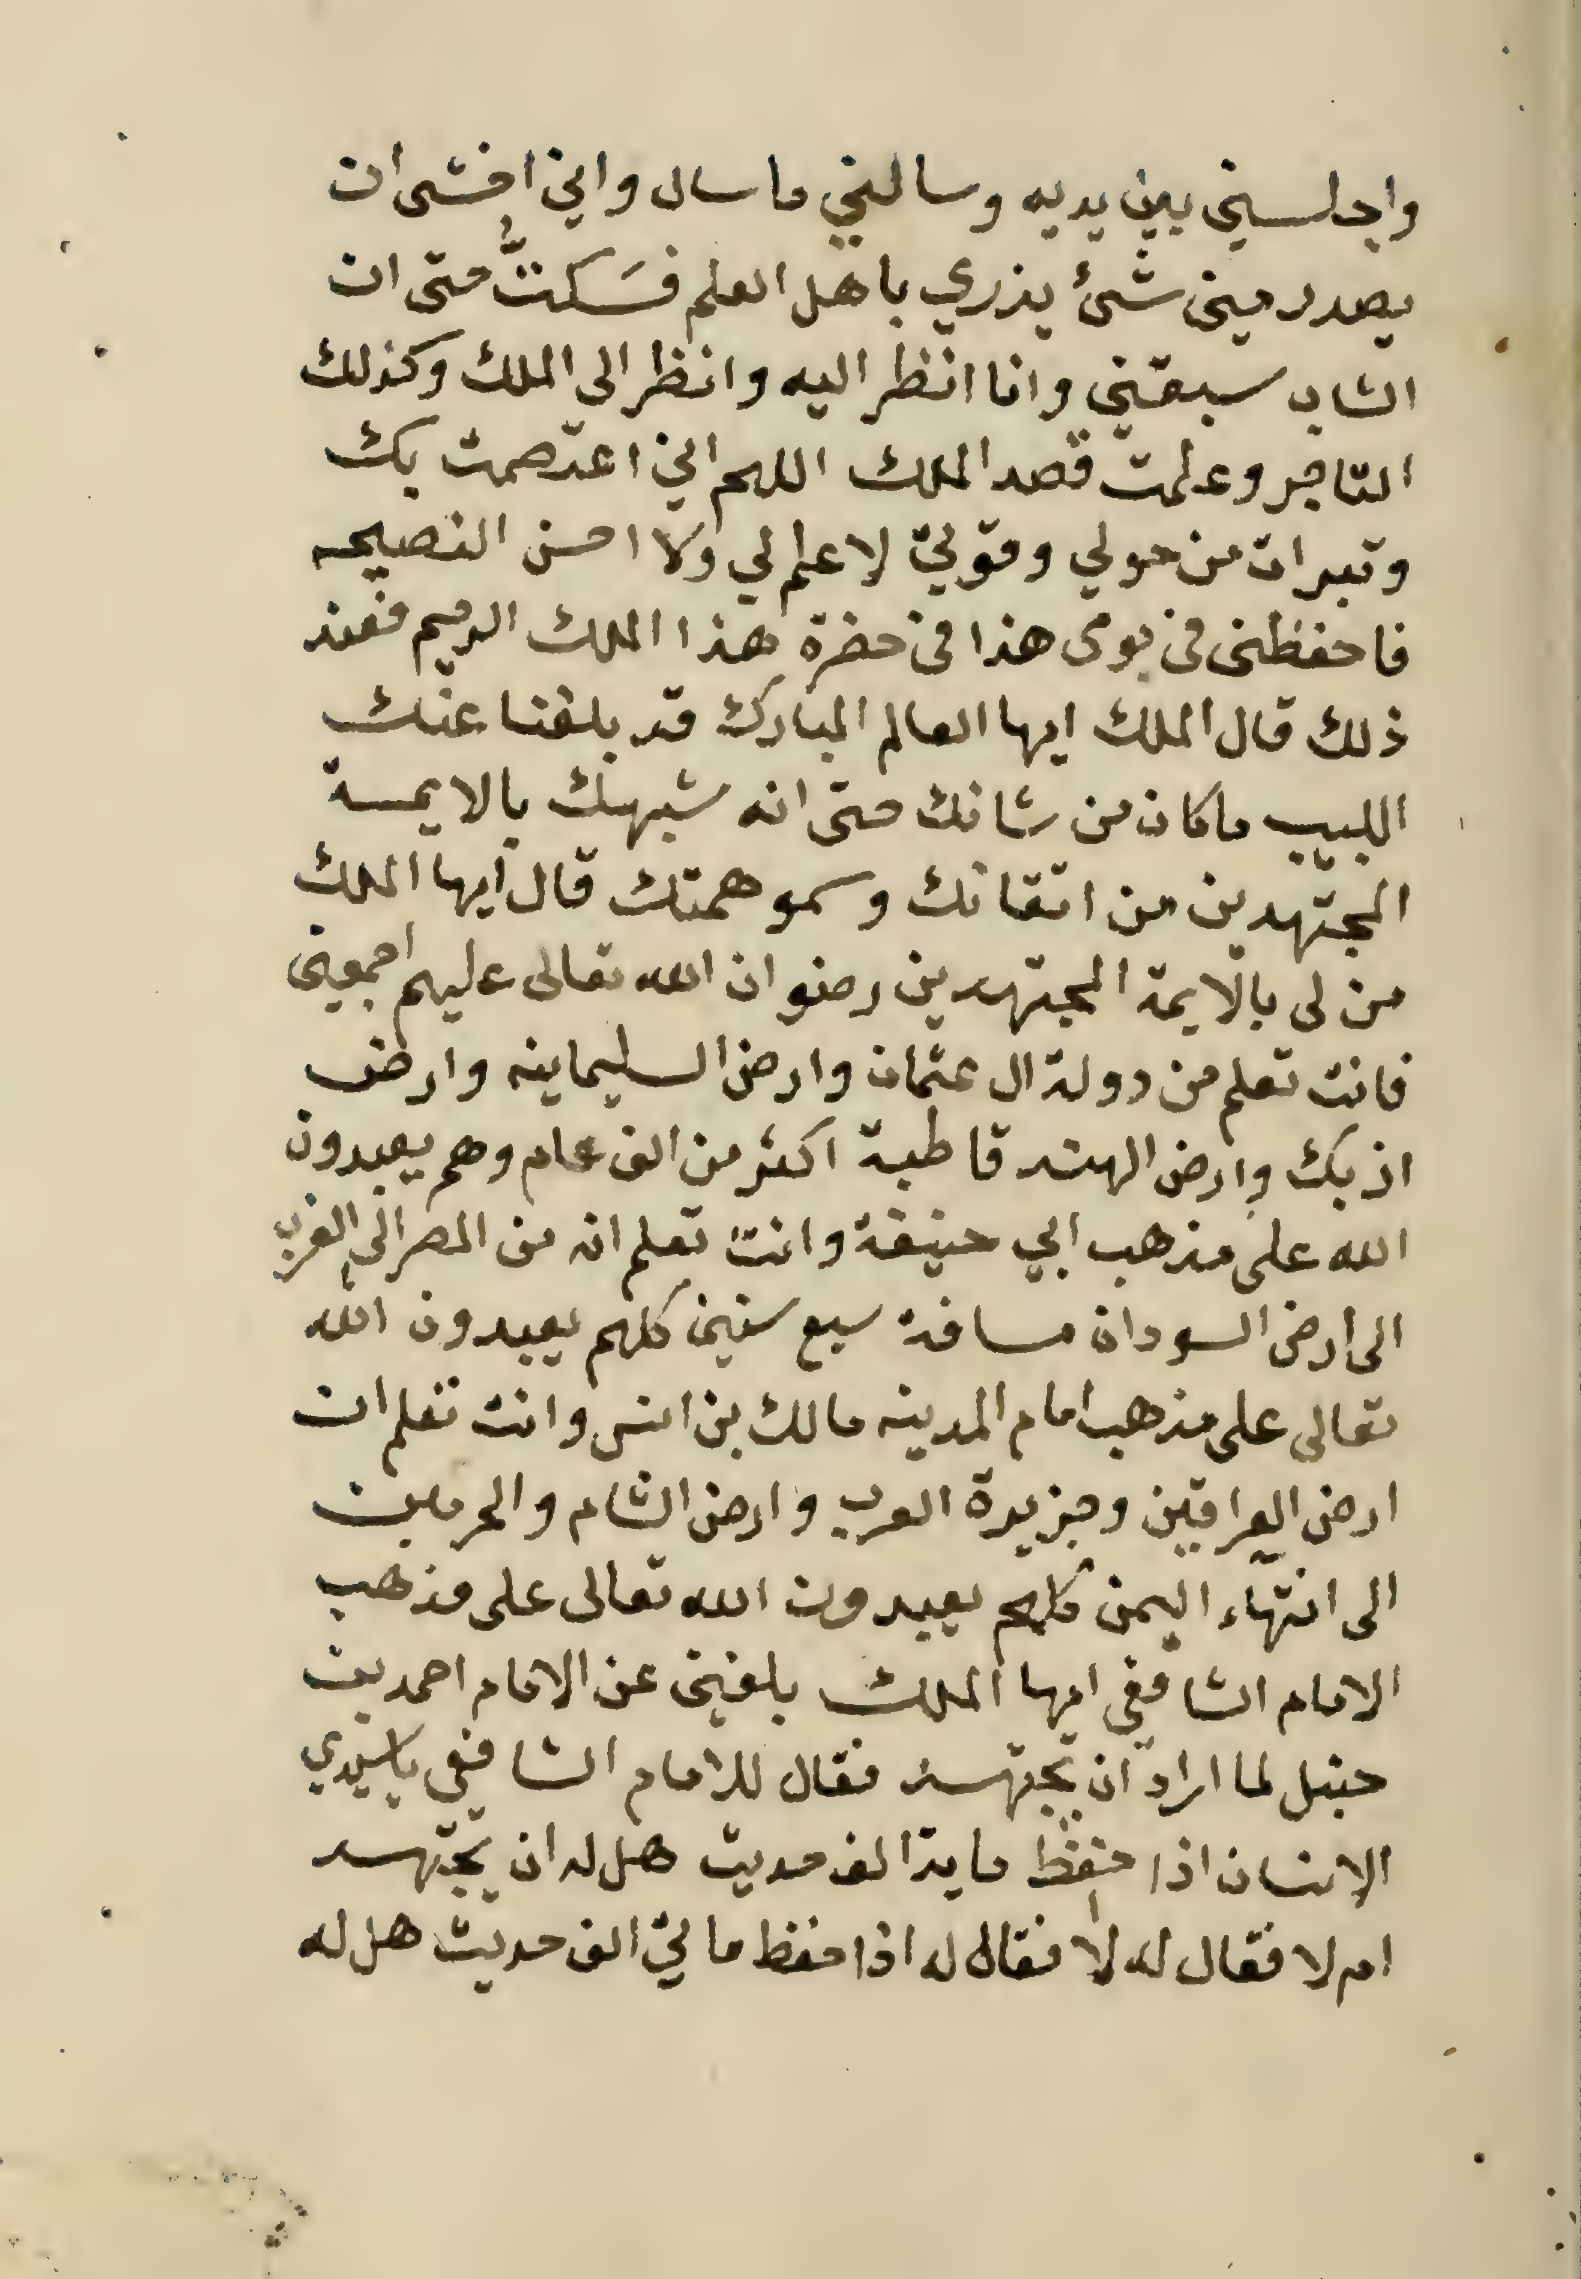 واجلسني بين يديه وسالني ما سال واني اخشى ان
يصدر مني شئ يزري باهل العلم فسَكتُّ حتى ان
الشاب سبقني وانا انظر اليه وانظر الى الملك وكذلك
التاجر وعلمت قصد الملك اللهم اني اعتصمت بك
وتبرات من حولي وقوتي لا علم لي ولا احسن النصيحه
فاحفظني في يومي هذا في حضرة هذا الملك الرحيم فعند
ذلك قال الملك ايها العالم المبارك قد بلغنا عنك
اللبيب ما كان من شانك حتى انه شبهك بالايمة
المجتهدين من اتقانك وسمو همتك قال ايها الملك
من لي بالايمة المجتهدين رضوان الله تعالى عليهم اجمعين
فانت تعلم من دولة ال عثمان وارض السليمانيه وارض
ازبك وارض الهند قاطبة اكثر من الف عام وهم يعبدون
الله على مذهب ابي حنيفة وانت تعلم انه من المصر الى الغرب
الى ارض السودان مسافة سبع سنين كلهم يعبدون الله
تعالى على مذهب امام المدينه مالك بن انس وانت تعلم ان
ارض العراقين وجزيرة العرب وارض الشام والحرمين
الى انتهاء اليمن كلهم يعبدون الله تعالى على مذهب
الامام الشافعي ايها الملك بلغني عن الامام احمد بن
حنبل لما اراد ان يجتهد فقال للامام الشافعي يا سيدي
الانسان اذا حفظ ماية الف حديث هل له ان يجتهد
ام لا فقال له لا فقال له اذا حفظ مائي الف حديث هل له